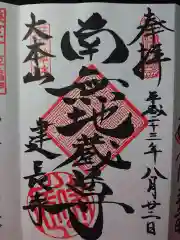 奉拝
平成二十三年八月廿二日
南無地蔵尊
大本山
建長寺